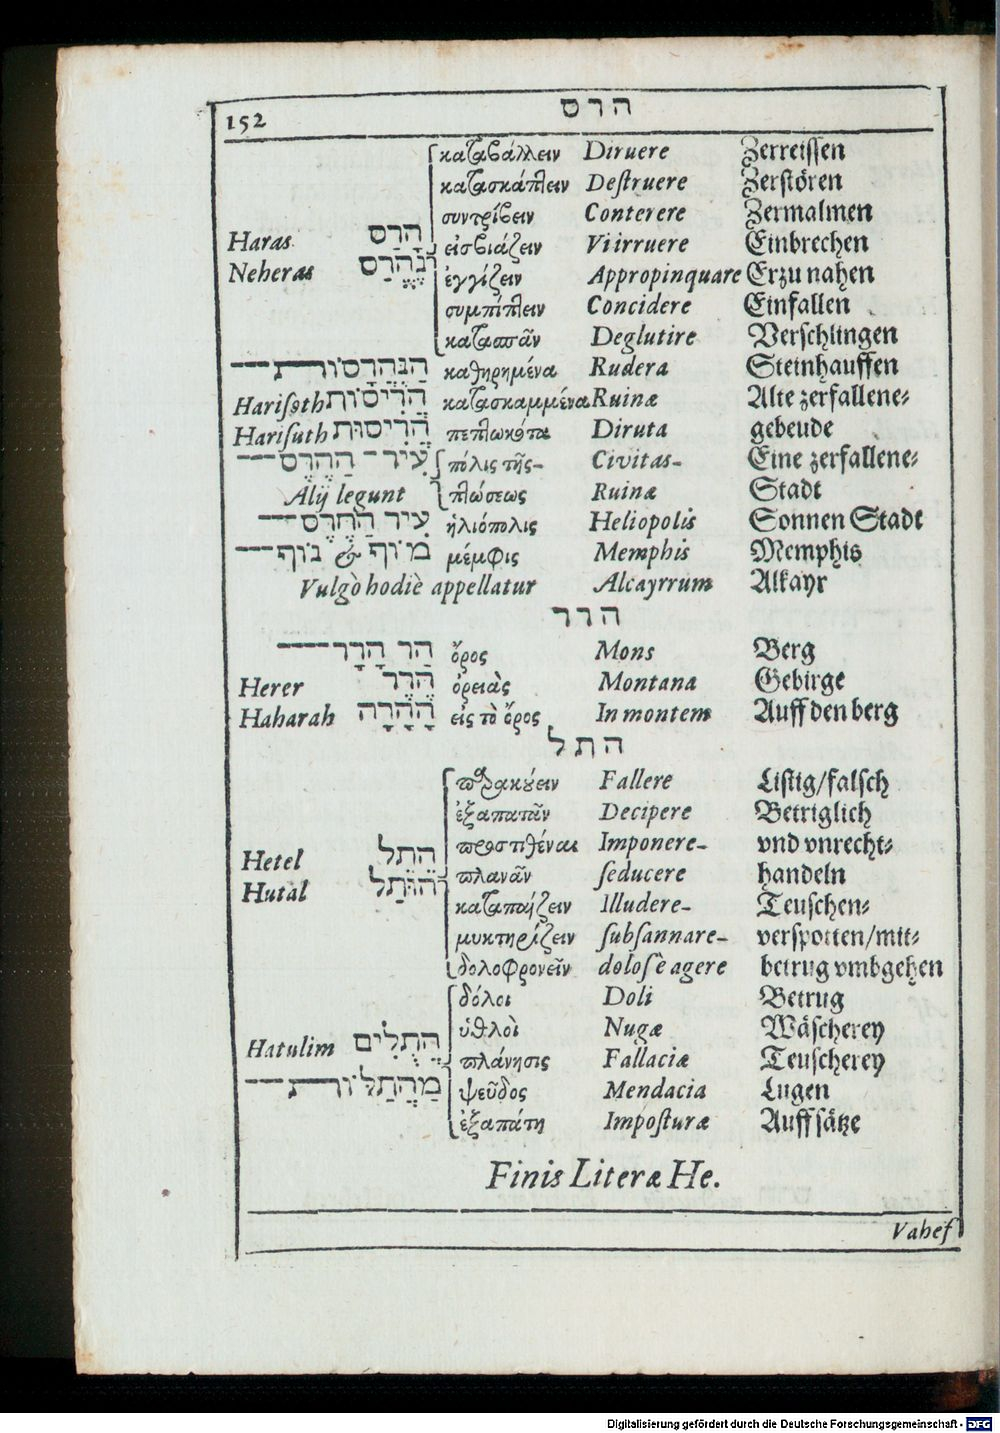 152 הרס
καταβάλλειν Diruere Zerreissen
κατασκάπτειν Destruere Zerstören
συντρίβειν Conterere Zermalmen
Haras הָרַס εἰσβιάζειν Vi irruere Einbrechen
Neheras נֶהֱרַס ἐγγίζειν Appropinquare Erzu nahen
συμπίπτειν Concidere Einfallen
κατασπᾶν Deglutire Verschlingen
הַנֶּהֱרָסוֹת καθηρημένα Rudera Steinhauffen
Harisoth הֲרִיסוֹת κατασκαμμένα Ruinæ Alte zerfallene-
Harisuth הֲרִיסוּת πεπτωκότα Diruta gebeude
עִיר־הַהֶרֶס πόλις τῆς- Civitas- Eine zerfallene-
Alij legunt πτώσεως Ruinæ Stadt
עִיר הַחֶרֶס ἡλιόπολις Heliopolis Sonnen Stadt
מוֹף & נוֹף μέμφις Memphis Memphis
Vulgò hodiè appellatur Alcayrrum Alkayr
הרר
הַר הָרָר ὄρος Mons Berg
Herer הֶרֶר ὀρειὰς Montana Gebirge
Haharah הָהָרָה εἰς τὸ ὄρος In montem Auff den berg
התל
παρακούειν Fallere Listig/falsch
ἐξαπατᾶν Decipere Betriglich
προστιθέναι Imponere- vnd vnrecht-
Hetel הֵתֵל πλανᾶν seducere handeln
Hutal הוּתַל καταπαίζειν Illudere- Teuschen-
μυκτηρίζειν subsannare- verspotten/mit-
δολοφρονεῖν dolosè agere betrug vmbgehen
δόλοι Doli Betrug
ὑθλοὶ Nugæ Wäscherey
Hatulim הֲתֻלִים πλάνησις Fallaciæ Teuscherey
מַהֲתַלּוֹת ψεῦδος Mendacia Lugen
ἐξαπάτη Imposturæ Auffsätze
Finis Literæ He.
Vahef
Digitalisierung gefördert durch die Deutsche Forschungsgemeinschaft - DFG